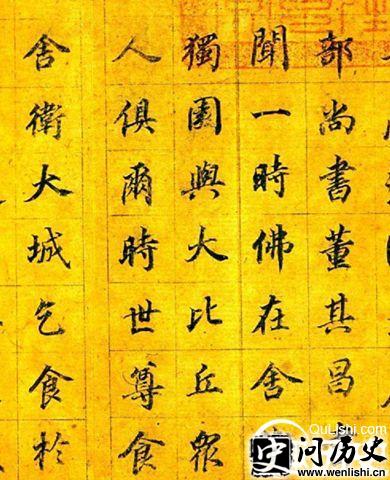 部尚書董其昌
聞一時佛在舍
獨園與大比丘眾
人俱爾時世尊食
舍衛大城乞食於
QuLishi.com
问历史
www.wenlishi.com